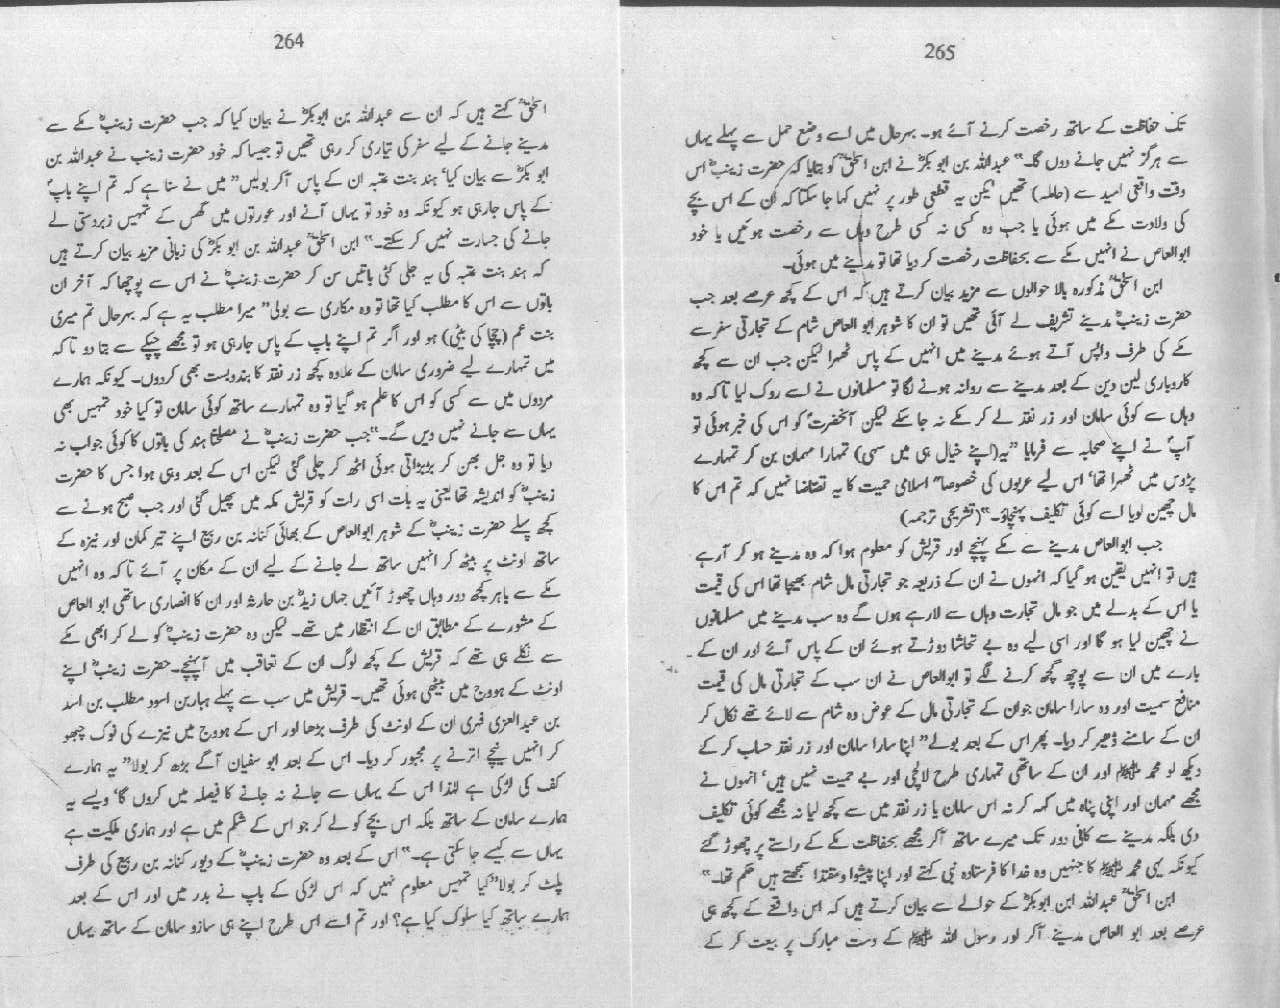 264
اسحٰقؒ کہتے ہیں کہ ان سے عبداللہ بن ابوبکرؓ نے بیان کیا کہ جب حضرت زینبؓ مکے سے
مدینے جانے کے لیے سفر کی تیاری کر رہی تھیں تو جیسا کہ خود حضرت زینب نے عبداللہ بن
ابو بکرؓ سے بیان کیا‘ ہند بنت عتبہ ان کے پاس آکر بولیں” میں نے سنا ہے کہ تم اپنے باپؐ
کے پاس جا رہی ہو کیونکہ وہ خود تو یہاں آنے اور عورتوں میں گھس کے تمہیں زبردستی لے
جانے کی جسارت نہیں کر سکتے۔“ ابن اسحٰقؒ عبداللہ بن ابو بکرؓ کی زبانی مزید بیان کرتے ہیں
کہ ہند بنت عتبہ کی یہ جلی کٹی باتیں سن کر حضرت زینبؓ نے اس سے پوچھا کہ آخر ان
باتوں سے اس کا مطلب کیا تھا تو وہ مکاری سے بولی” میرا مطلب یہ ہے کہ بہرحال تم میری
بنت عم (چچا کی بیٹی) ہو اور اگر تم اپنے باپ کے پاس جا رہی ہو تو مجھے چپکے سے بتا دو تاکہ
میں تمہارے لیے ضروری سامان کے علاوہ کچھ زر نقد کا بندوبست بھی کردوں۔ کیونکہ ہمارے
مردوں میں سے کسی کو اس کا علم ہو گیا تو وہ تمہارے ساتھ کوئی سامان تو کیا خود تمہیں بھی
یہاں سے جانے نہیں دیں گے۔“جب حضرت زینبؓ نے مصلحتاً ہند کی باتوں کا کوئی جواب نہ
دیا تو وہ جل بھن کر بڑبڑاتی ہوئی اٹھ کر چلی گئی لیکن اس کے بعد وہی ہوا جس کا حضرت
زینبؓ کو اندیشہ تھا یعنی یہ بات اسی رات کو قریش مکہ میں پھیل گئی اور جب صبح ہونے سے
کچھ پہلے حضرت زینبؓ کے شوہر ابوالعاص کے بھائی کنانہ بن ربیع اپنے تیر کمان اور نیزہ کے
ساتھ اونٹ پر بیٹھ کر انہیں ساتھ لے جانے کے لیے ان کے مکان پر آئے تاکہ وہ انہیں
مکے سے باہر کچھ دور وہاں چھوڑ آئیں جہاں زیدؓ بن حارثہ اور ان کا انصاری ساتھی ابو العاص
کے مشورے کے مطابق ان کے انتظار میں تھے۔ لیکن وہ حضرت زینبؓ کو لے کر ابھی مکے
سے نکلے ہی تھے کہ قریش کے کچھ لوگ ان کے تعاقب میں آپہنچے۔حضرت زینبؓ اپنے
اونٹ کے ہودج میں بیٹھی ہوئی تھیں۔ قریش میں سب سے پہلے ہبار بن اسود مطلب بن اسد
بن عبدالعزی فہری ان کے اونٹ کی طرف بڑھا اور اس کے ہودج میں نیزے کی نوک چبھو
کر انہیں نیچے اترنے پر مجبور کر دیا۔ اس کے بعد ابو سفیان آگے بڑھ کر بولا” یہ ہمارے
کف کی لڑکی ہے لہٰذا اس کے یہاں سے جانے نہ جانے کا فیصلہ میں کروں گا‘ ویسے یہ
ہمارے سامان کے ساتھ بلکہ اس بچے کو لے کر جو اس کے شکم میں ہے اور ہماری ملکیت ہے
یہاں سے کیسے جا سکتی ہے۔“ اس کے بعد وہ حضرت زینبؓ کے دیور کنانہ بن ربیع کی طرف
پلٹ کر بولا”کیا تمہیں معلوم نہیں کہ اس لڑکی کے باپ نے بدر میں اور اس کے بعد
ہمارے ساتھ کیا سلوک کیا ہے؟ اور تم اسے اس طرح اپنے ہی سازو سامان کے ساتھ یہاں
265
تک حفاظت کے ساتھ رخصت کرنے آئے ہو۔ بہرحال میں اسے وضع حمل سے پہلے یہاں
سے ہرگز نہیں جانے دوں گا۔“ عبداللہ بن ابو بکرؓ نے ابن اسحٰقؒ کو بتایا کہ حضرت زینبؓ اس
وقت واقعی امید سے (حاملہ) تھیں لیکن یہ قطعی طور پر نہیں کہا جا سکتا کہ ان کے اس بچے
کی ولادت مکے میں ہوئی یا جب وہ کسی نہ کسی طرح وہاں سے رخصت ہوئیں یا خود
ابوالعاص نے انہیں مکے سے بحفاظت رخصت کر دیا تھا تو مدینے میں ہوئی۔
ابن اسحٰقؒ مذکورہ بالا حوالوں سے مزید بیان کرتے ہیں کہ اس کے کچھ عرصے بعد جب
حضرت زینبؓ مدینے تشریف لے آئی تھیں تو ان کا شوہر ابو العاص شام کے تجارتی سفر سے
مکے کی طرف واپس آتے ہوئے مدینے میں انہیں کے پاس ٹھہرا لیکن جب ان سے کچھ
کاروباری لین دین کے بعد مدینے سے روانہ ہونے لگا تو مسلمانوں نے اسے روک لیا تاکہ وہ
وہاں سے کوئی سامان اور زر نقد لے کر مکے نہ جا سکے لیکن آنحضرتؐ کو اس کی خبر ہوئی تو
آپؐ نے اپنے صحابہ سے فرمایا ”یہ(اپنے خیال ہی میں سہی) تمہارا مہمان بن کر تمہارے
پڑوس میں ٹھہرا تھا‘ اس لیے عربوں کی خصوصاً اسلامی حمیت کا یہ تقاضا نہیں کہ تم اس کا
مال چھین لویا اسے کوئی تکلیف پہنچاؤ۔“(تشریحی ترجمہ)
جب ابوالعاص مدینے سے مکے پہنچے اور قریش کو معلوم ہوا کہ وہ مدینے ہو کر آرہے
ہیں تو انہیں یقین ہو گیا کہ انہوں نے ان کے ذریعہ جو تجارتی مال شام بھیجا تھا اس کی قیمت
یا اس کے بدلے میں جو مال تجارت وہاں سے لا رہے ہوں گے وہ سب مدینے میں مسلمانوں
نے چھین لیا ہو گا اور اسی لیے وہ بے تحاشا دوڑتے ہوئے ان کے پاس آئے اور ان کے
بارے میں ان سے پوچھ گچھ کرنے لگے تو ابوالعاص نے ان سب کے تجارتی مال کی قیمت
منافع سمیت اور وہ سارا سامان جو ان کے تجارتی مال کے عوض وہ شام سے لائے تھے نکال کر
ان کے سامنے ڈھیر کر دیا۔ پھر اس کے بعد بولے” اپنا سارا سامان اور زر نقد حساب کر کے
دیکھ لو محمد ﷺ اور ان کے ساتھی تمہاری طرح لالچی اور بے حمیت نہیں ہیں‘ انہوں نے
مجھے مہمان اور اپنی پناہ میں کہہ کر نہ اس سامان یا زر نقد میں سے کچھ لیا نہ مجھے کوئی تکلیف
دی بلکہ مدینے سے کافی دور تک میرے ساتھ آکر مجھے بحفاظت مکے کے راستے پر چھوڑ گئے
کیونکہ یہی محمد ﷺ کا جنہیں وہ خدا کا فرستادہ نبی کہتے اور اپنا پیشوا و مقتدا سمجھتے ہیں حکم تھا۔“
ابن اسحٰقؒ عبداللہ ابن ابوبکرؓ کے حوالے سے بیان کرتے ہیں کہ اس واقعے کے کچھ ہی
عرصے بعد ابو العاص مدینے آکر اور رسول اللہ ﷺ کے دست مبارک پر بیعت کر کے